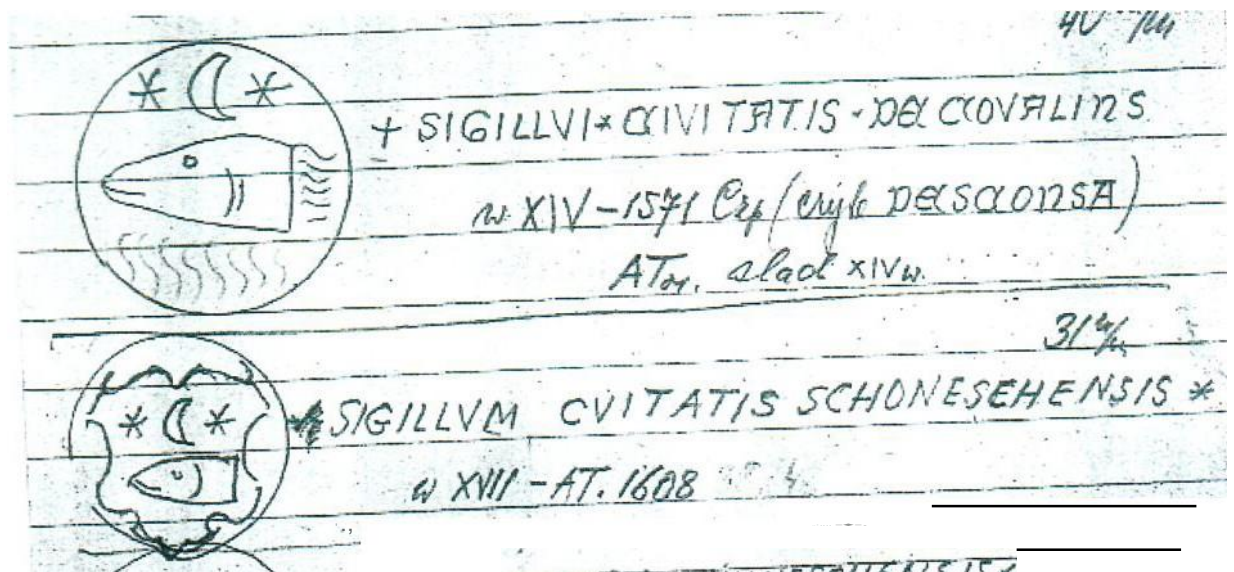 40 m/m
+ SIGILLVI * CIVITATIS · DE COVALINS
w. XIV - 1571 Czp (DESCONSA)
ATor. XIV w.
31 m/m
* SIGILLVM CVITATIS SCHONESEHENSIS *
w XVII - AT. 1608